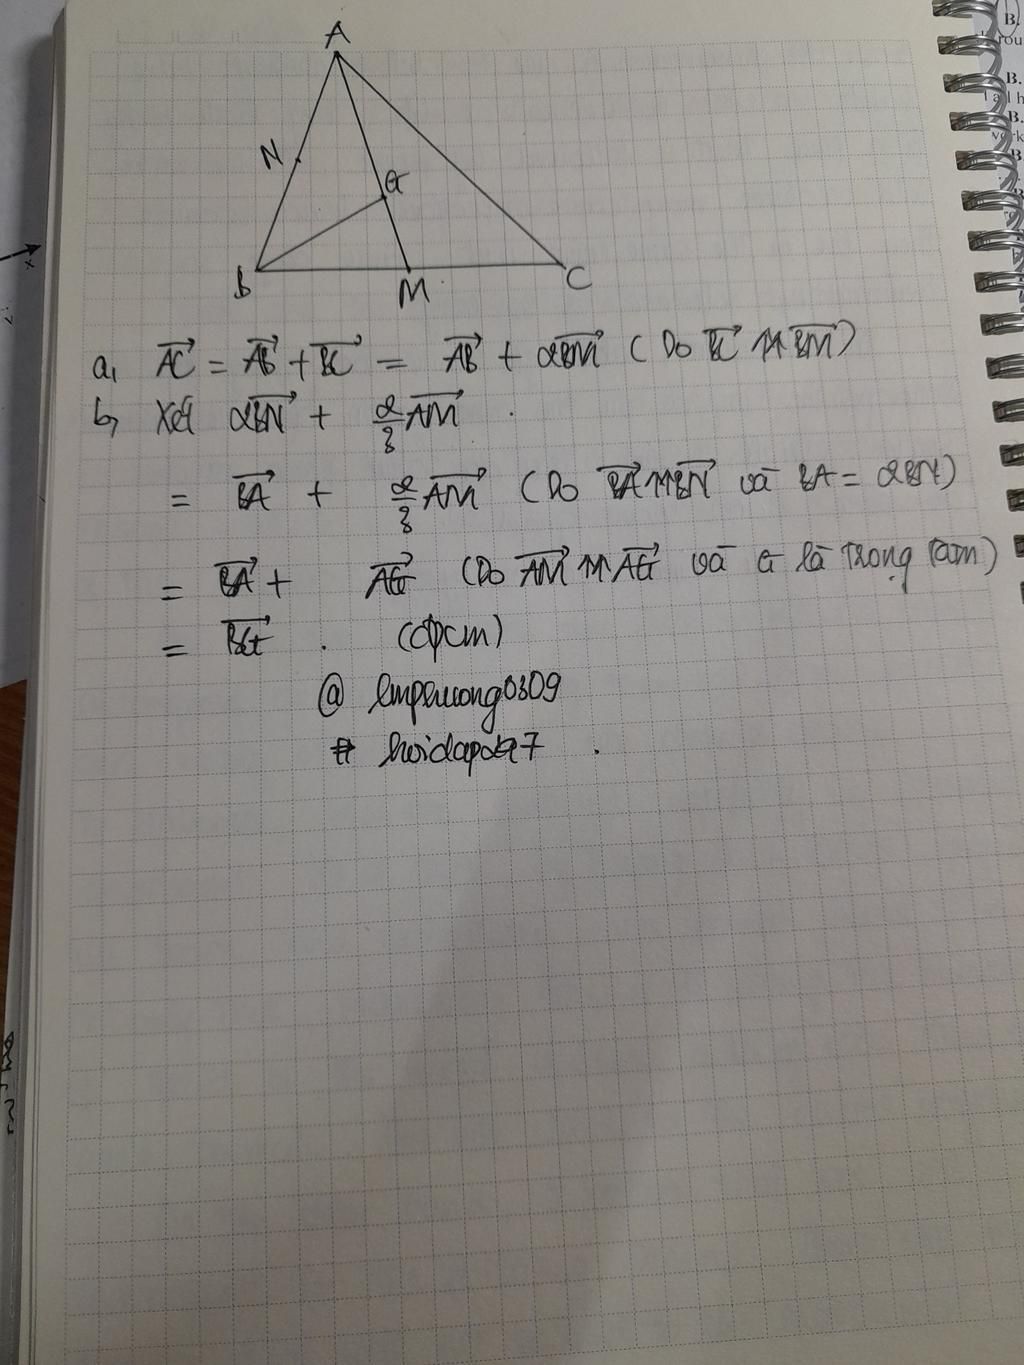 A
N
G
B
M
C
a, AC = AB + BC = AB + 2BM (Do BC ↑↑ BM)
b, Xét 2BN + 2/3 AM .
= BA + 2/3 AM (Do BA ↑↑ BN và BA = 2BN)
= BA + AG (Do AM ↑↑ AG và G là trọng tâm)
= BG . (đpcm)
@
# hoidap247 .
B.
B.
B.
B
x